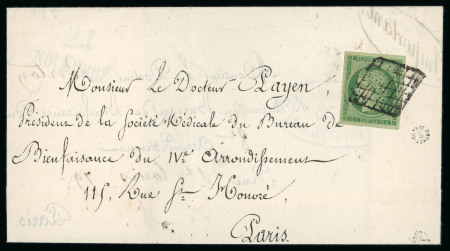 Monsieur Le Docteur Payen,
Président de la Société Médicale du Bureau de
Bienfaisance du IVe Arrondissement
115, Rue St Honoré,
Paris.